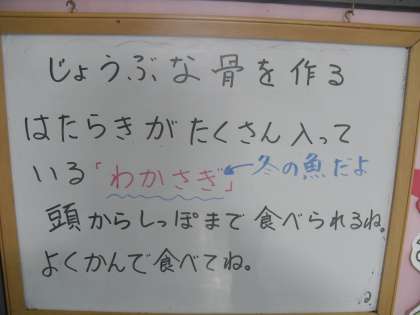 じょうぶな骨を作る
はたらきがたくさん入って
いる「わかさぎ」←冬の魚だよ
頭からしっぽまで食べられるね。
よくかんで食べてね。